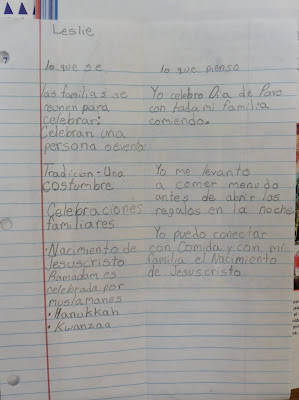 Leslie
lo que se
lo que pienso
las familias se
reunen para
celebrar:
Celebran una
persona o evento:
Yo celebro Dia de Pavo
con toda mi familia
comiendo.
Tradicion - Una
costumbre
Yo me levanto
a comer menudo
antes de abrir los
regalos en la noche
Celebraciones
familiares
• Nacimiento de
Jesuscristo
Ramadam es
celebrada por
muslamanes
• Hanukkah
• Kwanzaa
Yo puedo conectar
con Comida y con mi
familia el Nacimiento
de Jesuscristo